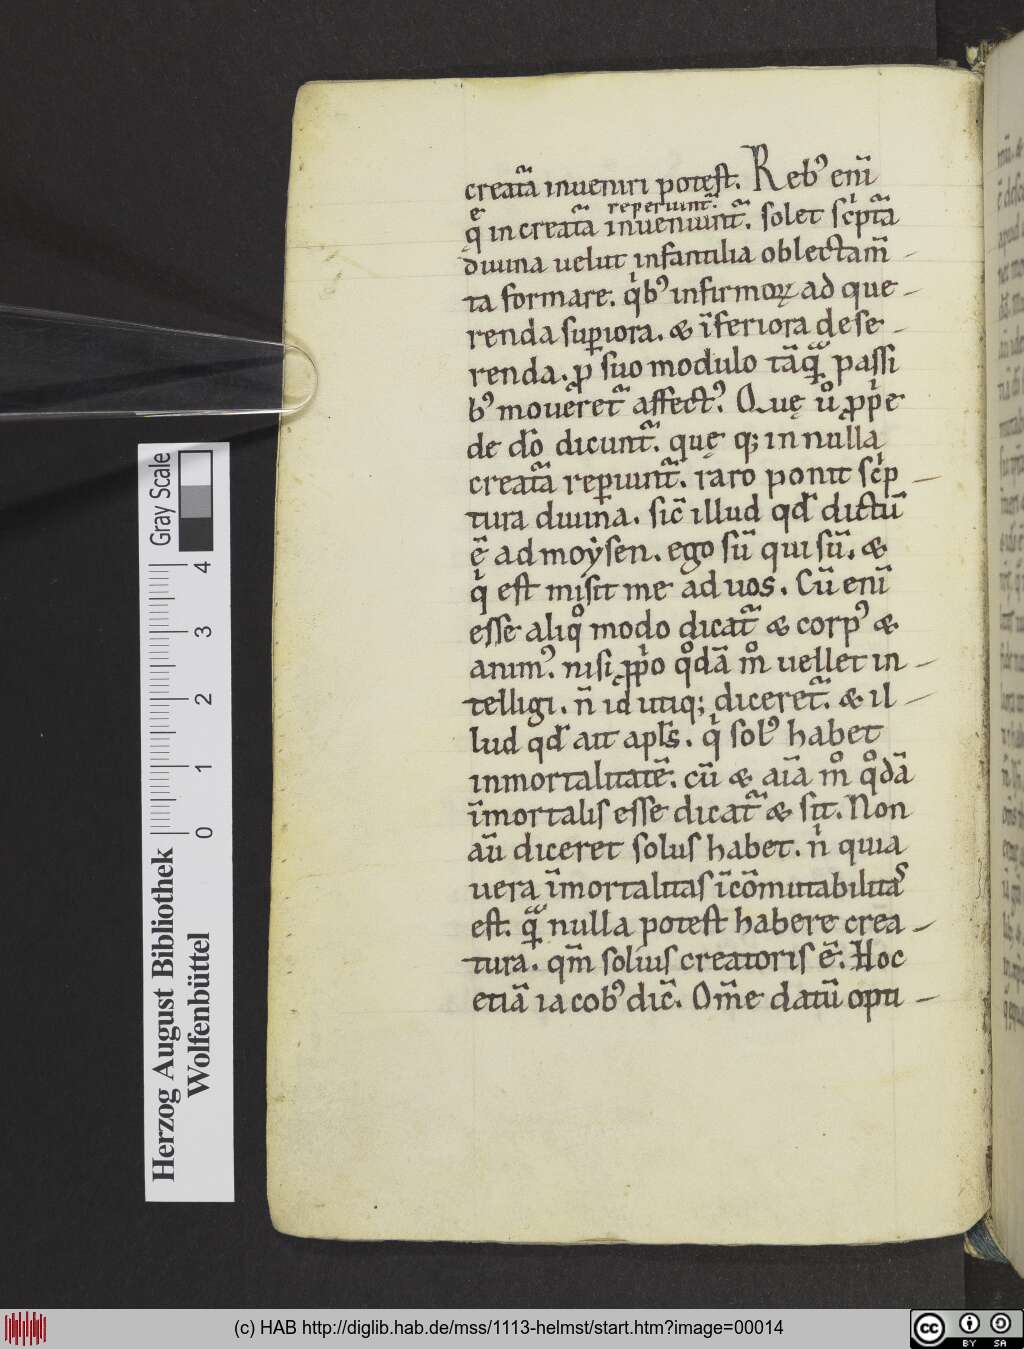 creat᷑a inueniri potest. Reb᾽ eni̅
repeiiunt᷑.
q̅e in creat᷑a inueniunt᷑. solet sc̓pt᷑a
diuina uelut infantilia oblectam̅
ta formare. qͥb᾽ infirmoꝝ ad que
renda suꝑiora. & i̅feriora dese
renda. ꝓ suo modulo ta̅qᷓ̅ passi
b᾽ moueret᷑ affect᾽. Quę uͦ ꝓpͥe
de do̅ dicunt᷑. quę q; in nulla
creat᷑a reꝑiunt᷑. raro ponit sc̓p
tura diuina. sic̅ illud qđ dictu̅
e̅ ad moẏsen. ego su̅ qui su̅. &
qͥ est misit me ad uos. Cu̅ eni̅
esse aliqͦ modo dicat᷑ & corp᾽ &
anim᾽. nisi ꝓpͥo qͦda̅ mͦ uellet in
telligi. n̅ id utiq; diceret᷑. & il
lud qđ ait apl̅s. qͥ sol᾽ habet
inmortalitate̅. cu̅ & ai̅a mͦ qͦda̅
i̅mortalis esse dicat᷑ & sit. Non
au̅ diceret solus habet. nͥ quia
uera i̅mortalitas i̅co̅mutabilitas
est. qᷓ̅ nulla potest habere crea
tura. qm̅ solius creatoris e̅. Hoc
etia̅ iacob᾽ dic̅. Om̅e datu̅ opti
Gray Scale
4
3
2
1
0
Herzog August Bibliothek
Wolfenbüttel
(c) HAB http://diglib.hab.de/mss/1113-helmst/start.htm?image=00014
cc
BY SA